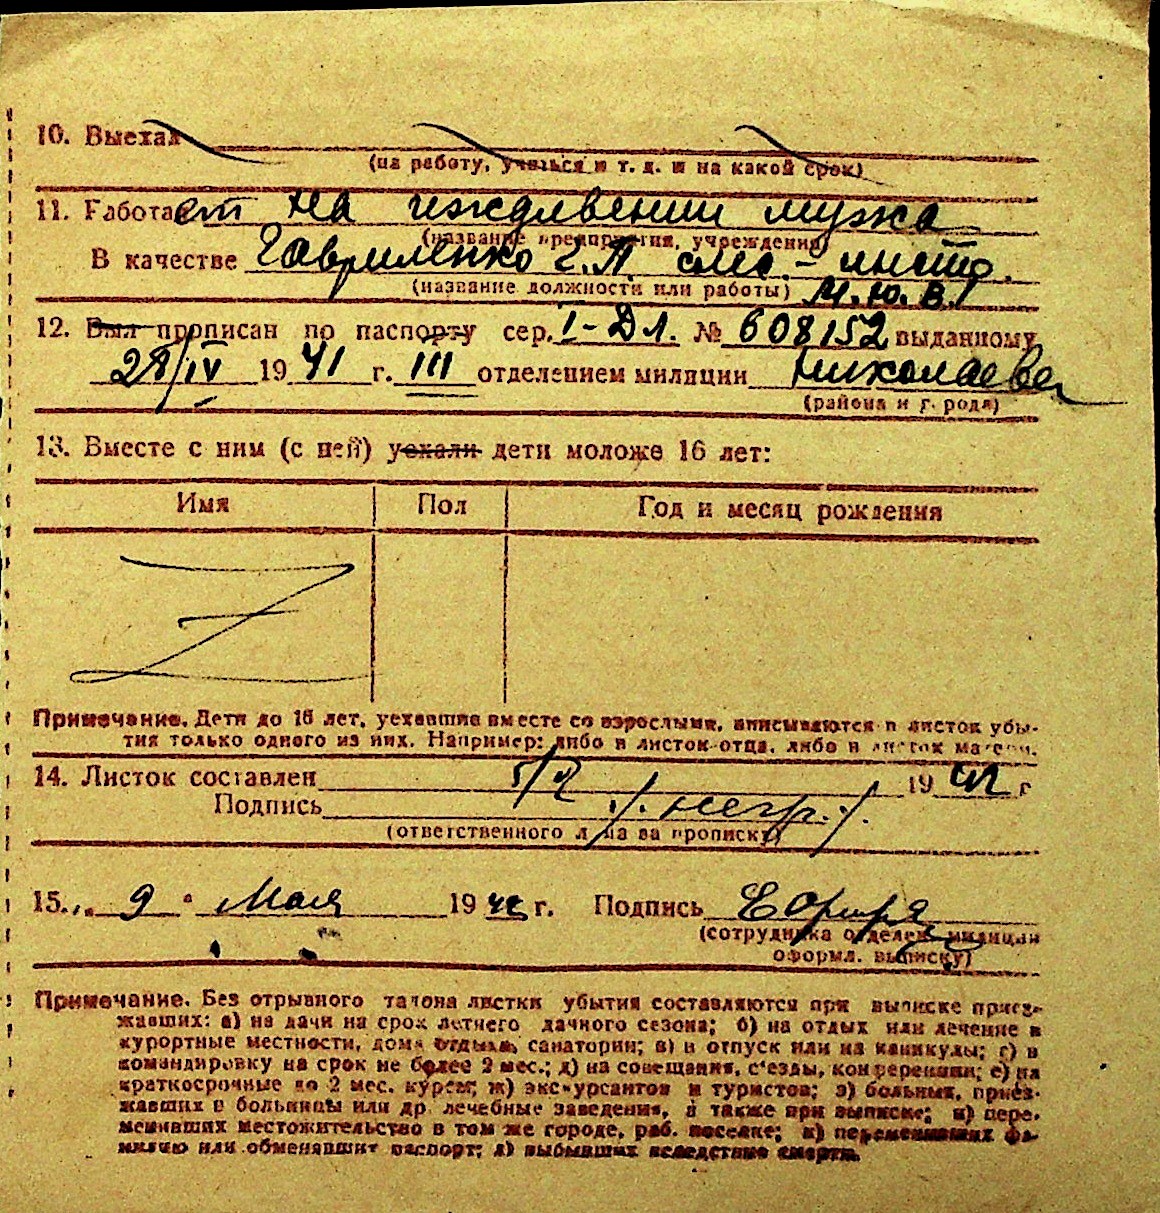 10. Выехал
(на работу, учиться и т. д. и на какой срок)
11. Работает на иждивении мужа
(название предприятия, учреждения)
В качестве Гавриленко
(название должности или работы)
12. Был прописан по паспорту сер. I-ДЛ. № 608152 выданному
28/IV 1941 г. III отделением милиции Николаева
(района и города)
13. Вместе с ним (с ней) уехали дети моложе 16 лет:
Имя Пол Год и месяц рождения
Z
Примечание. Дети до 16 лет, уехавшие вместе со взрослыми, вписываются в листок убы-
тия только одного из них. Например: либо в листок отца, либо в листок матери.
14. Листок составлен 5/V 1941 г
Подпись
(ответственного лица за прописку)
15. „ 9 " Мая 1941 г. Подпись
(сотрудника отделен. милиции
оформл. выписку)
Примечание. Без отрывного талона листки убытия составляются при выписке приез-
жавших: а) на дачи на срок летнего дачного сезона; б) на отдых или лечение в
курортные местности, дома отдыха, санатории; в) в отпуск или на каникулы; г) в
командировку на срок не более 2 мес.; д) на совещания, с'езды, конференции; е) на
краткосрочные до 2 мес. курсы; ж) экскурсантов и туристов; з) больных, приез-
жавших в больницы или др. лечебные заведения, а также при выписке; и) пере-
менивших местожительство в том же городе, раб. поселке; к) переменивших фа-
милию или обменявших паспорт; л) выбывших вследствие смерти.